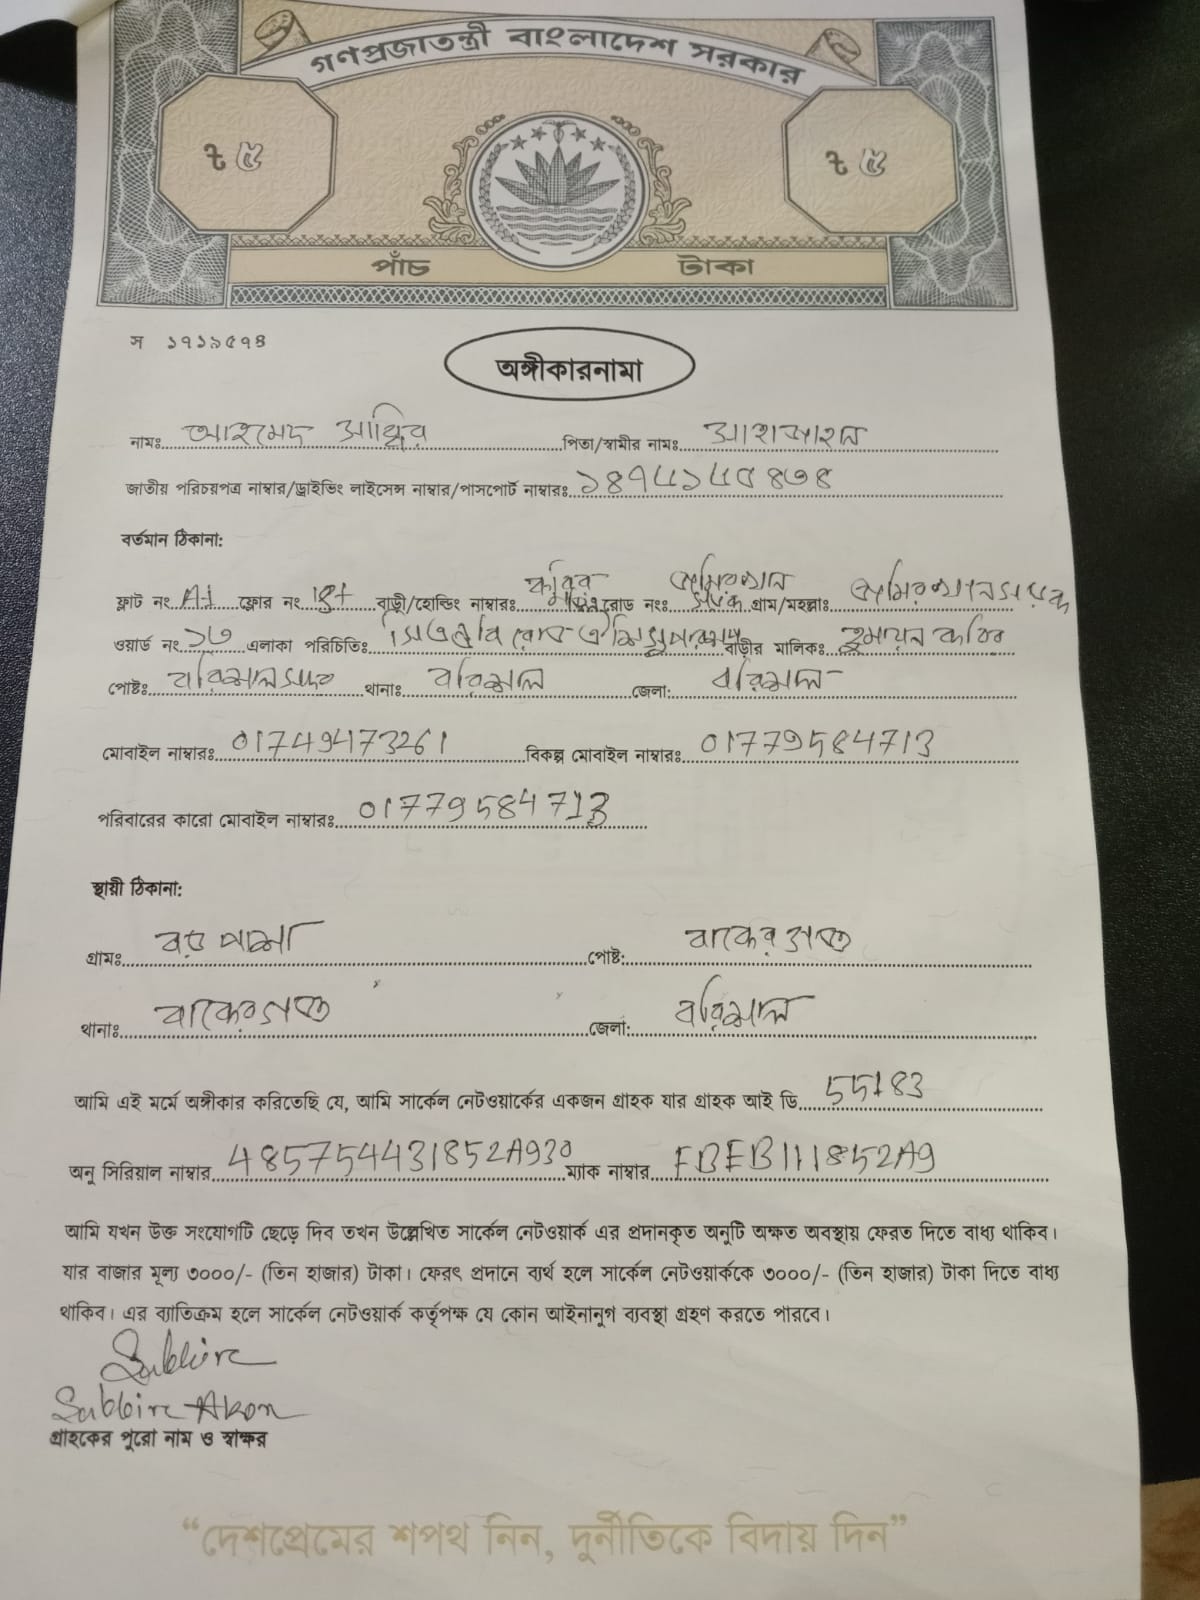 গণপ্রজাতন্ত্রী বাংলাদেশ সরকার
৳ ৫ ৳ ৫
পাঁচ টাকা
স ১৭১৯৫৭৪
অঙ্গীকারনামা
নামঃ আহমেদ সাব্বির পিতা/স্বামীর নামঃ শাহজাহান
জাতীয় পরিচয়পত্র নাম্বার/ড্রাইভিং লাইসেন্স নাম্বার/পাসপোর্ট নাম্বারঃ
বর্তমান ঠিকানা:
ফ্লাট নং A1 ফ্লোর নং 1st বাড়ী/হোল্ডিং নাম্বারঃ কবির রোড নংঃ সড়ক গ্রাম/মহল্লাঃ
ওয়ার্ড নং ১৩ এলাকা পরিচিতিঃ বাড়ীর মালিকঃ হুমায়ন কবির
পোষ্টঃ বরিশাল সদর থানাঃ বরিশাল জেলা: বরিশাল
মোবাইল নাম্বারঃ 01749473261 বিকল্প মোবাইল নাম্বারঃ 01779584713
পরিবারের কারো মোবাইল নাম্বারঃ 01779584713
স্থায়ী ঠিকানা:
গ্রামঃ বড় পাশা পোষ্ট: বাকেরগঞ্জ
থানাঃ বাকেরগঞ্জ জেলা: বরিশাল
আমি এই মর্মে অঙ্গীকার করিতেছি যে, আমি সার্কেল নেটওয়ার্কের একজন গ্রাহক যার গ্রাহক আই ডি 55183
অনু সিরিয়াল নাম্বার 485754431852A930 ম্যাক নাম্বার FBEB111852A9
আমি যখন উক্ত সংযোগটি ছেড়ে দিব তখন উল্লেখিত সার্কেল নেটওয়ার্ক এর প্রদানকৃত অনুটি অক্ষত অবস্থায় ফেরত দিতে বাধ্য থাকিব।
যার বাজার মূল্য ৩০০০/- (তিন হাজার) টাকা। ফেরৎ প্রদানে ব্যর্থ হলে সার্কেল নেটওয়ার্ককে ৩০০০/- (তিন হাজার) টাকা দিতে বাধ্য
থাকিব। এর ব্যাতিক্রম হলে সার্কেল নেটওয়ার্ক কর্তৃপক্ষ যে কোন আইনানুগ ব্যবস্থা গ্রহণ করতে পারবে।
Sabbire
Sabbire Akon
গ্রাহকের পুরো নাম ও স্বাক্ষর
“দেশপ্রেমের শপথ নিন, দুর্নীতিকে বিদায় দিন”